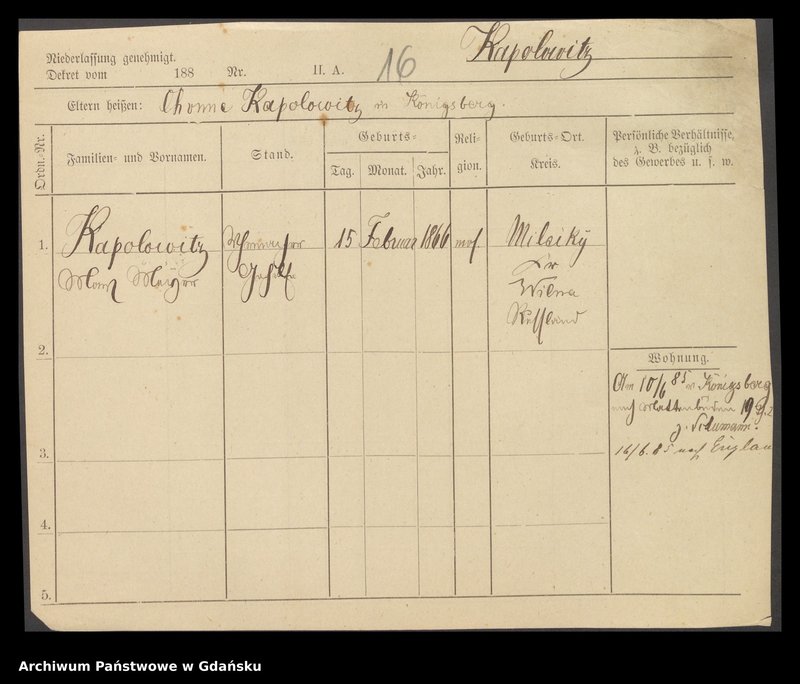 Kapolowitz
Niederlassung genehmigt.
Dekret vom 188 Nr. II. A. 16
Eltern heißen: Chonne Kapolowitz in Königsberg.
Ordn.-Nr.
Familien- und Vornamen.
Stand.
Geburts-
Tag. Monat. Jahr.
Reli-
gion.
Geburts-Ort.
Kreis.
Persönliche Verhältnisse,
z. B. bezüglich
des Gewerbes u. s. w.
1. Kapolowitz 15 Februar 1866 mos. Milaiky
Meyer
Kr
Wilna
Russland
2.
Wohnung.
Am 10/6 85 v Königsberg
nach Mattenbuden 19
z. Schumann.
16/6. 85 nach England
3.
4.
5.
Archiwum Państwowe w Gdańsku